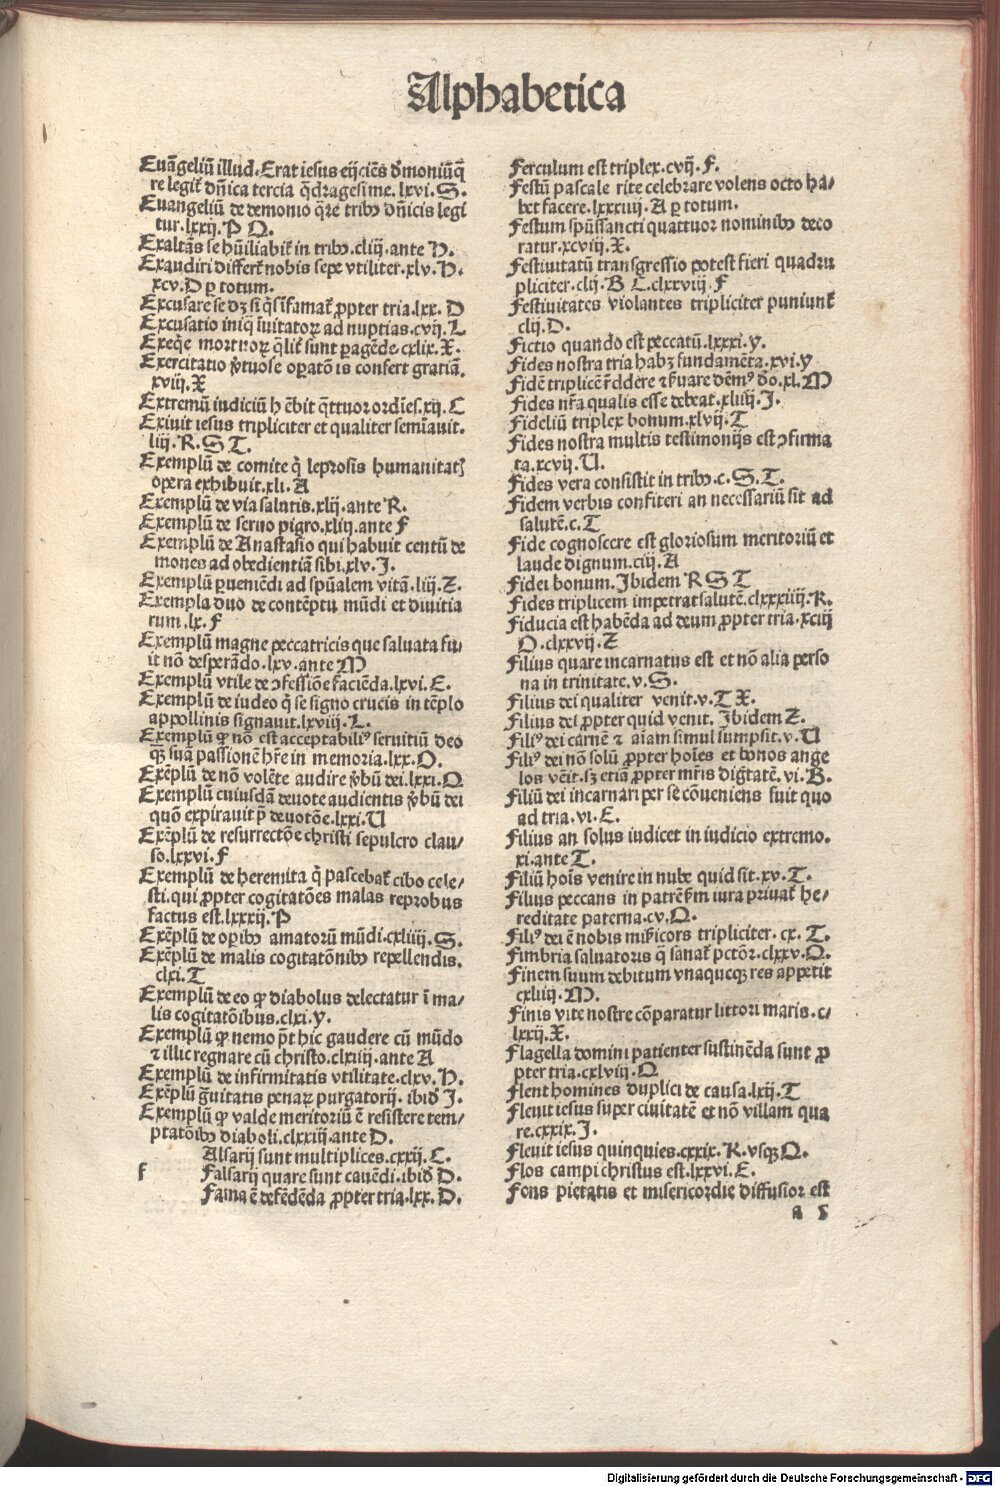 Alphabetica
Euāgeliū illud. Erat iesus eijciēs dͤmoniū q̄
re legit᷑ dn̄ica tercia q̄dragesime. lxvi. S.
Euangeliū de demonio q̄re tribꝰ dn̄icis legi
tur. lxxij. P Q.
Exaltās se hūiliabit᷑ in tribꝰ. cliij. ante H.
Exaudiri differt᷑ nobis sepe vtiliter. xlv. H.
xcv. D ꝑ totum.
Excusare se dꝫ si q̄s īfamat᷑ ꝓpter tria. lxx. D
Excusatio iniq̄ īuitatoꝝ ad nuptias. cvij. L
Exeq̄e mortuoꝝ q̄lit᷑ sunt ꝑagēde. cxlix. X.
Exercitatio v̓tuose oꝑatōis confert gratiā.
xviij. X
Extremū iudiciū hēbit q̄ttuor ordīes. xij. C
Exiuit iesus tripliciter et qualiter semīauit.
liij. R. S T.
Exemplū de comite q̄ leprosis humanitatꝭ
opera exhibuit. xli. A
Exemplū de via salutis. xlij. ante R.
Exemplū de seruo pigro. xliij. ante F
Exemplū de Anastasio qui habuit centū de
mones ad obedientiā sibi. xlv. I.
Exemplū ꝑueniēdi ad spūalem vitā. liij. Z.
Exempla duo de contēptu mūdi et diuitia
rum. lx. F
Exemplū magne peccatricis que saluata fu/
it nō desperādo. lxv. ante M
Exemplū vtile de ↄfessiōe faciēda. lxvi. E.
Exemplū de iudeo q̄ se signo crucis in tēplo
appollinis signauit. lxviij. L.
Exemplū ꝙ nō est acceptabiliꝰ seruitiū deo
qꝫ̄ suā passionē hr̄e in memoria. lxx. O.
Exēplū de nō volēte audire v̓bū dei. lxxi. Q
Exemplū cuiusdā deuote audientis v̓bū dei
quō expirauit p̄ deuotōe. lxxi. U
Exēplū de resurrectōe christi sepulcro clau/
so. lxxvi. F
Exemplū de heremita q̄ pascebat᷑ cibo cele/
sti. qui ꝓpter cogitatōes malas reprobus
factus est. lxxxij. P
Exēplū de oꝑibꝰ amatorū mūdi. cxliiij. S.
Exēplū de malis cogitatōnibꝰ repellendis.
clxi. T
Exemplū de eo ꝙ diabolus delectatur ī ma/
lis cogitatōibus. clxi. Y.
Exemplū ꝙ nemo pt̄ hic gaudere cū mūdo
⁊ illic regnare cū christo. clxiij. ante A
Exemplū de infirmitatis vtilitate. clxv. H.
Exēplū ḡuitatis penaꝝ purgatorij. ibid̄ I.
Exemplū ꝙ valde meritoriū ē resistere tem/
ptatōibꝰ diaboli. clxxiij. ante D.
Alsarij sunt multiplices. cxxij. C.
f Falsarij quare sunt cauēdi. ibid̄ D.
Fama ē defēdēda ꝓpter tria. lxx. D.
Ferculum est triplex. cvij. F.
Festū pascale rite celebrare volens octo ha/
bet facere. lxxxiiij. A ꝑ totum.
Festum spūssancti quattuor nominibꝰ deco
ratur. xcviij. X.
Festiuitatū transgressio potest fieri quadru
pliciter. clij. B C. clxxviij. F
Festiuitates violantes tripliciter puniunt᷑
clij. D.
Fictio quando est peccatū. lxxxi. Y.
Fides nostra tria habꝫ fundamēta. xvi. Y
Fidē triplicē r̄ddere ⁊ ẜuare dēmꝰ dō. xl. M
Fides nr̄a qualis esse debeat. xliiij. I.
Fideliū triplex bonum. xlvij. T
Fides nostra multis testimonijs est ↄfirma
ta. xcvij. U.
Fides vera consistit in tribꝰ. c. S. T.
Fidem verbis confiteri an necessariū sit ad
salutē. c. T
Fide cognoscere est gloriosum meritoriū et
laude dignum. ciij. A
Fidei bonum. Ibidem R S T
Fides triplicem impetrat salutē. clxxxiiij. R.
Fiducia est habēda ad deum ꝓpter tria. xciij
O. clxxvij. Z
Filius quare incarnatus est et nō alia perso
na in trinitate. v. S.
Filius dei qualiter venit. v. T X.
Filius dei ꝓpter quid venit. Ibidem Z.
Filiꝰ dei carnē ⁊ aīam simul sumpsit. v. U
Filiꝰ dei nō solū ꝓpter hoīes et bonos ange
los vēit. sꝫ etiā ꝓpter mr̄is dig̃tatē. vi. B.
Filiū dei incarnari per se cōueniens fuit quo
ad tria. vi. E.
Filius an solus iudicet in iudicio extremo.
xi. ante T.
Filiū hoīs venire in nube quid sit. xv. T.
Filius peccans in patrē ẜm iura priuat᷑ he/
reditate paterna. cv. Q.
Filiꝰ dei ē nobis mīs̄icors tripliciter. cx. T.
Fimbria saluatoris q̄ sanat᷑ pctōr̄. clxxv. O.
Finem suum debitum vnaqueqꝫ res appetit
cxliiij. M.
Finis vite nostre cōparatur littori maris. c/
lxxij. X.
Flagella domini patienter sustinēda sunt ꝓ
pter tria. cxlviij. Q
Flent homines duplici de causa. lxij. T
Fleuit iesus super ciuitatē et nō villam qua
re. cxxix. I.
Fleuit iesus quinquies. cxxix. K. vsqꝫ Q.
Flos campi christus est. lxxvi. E.
Fons pietatis et misericordie diffusior est
a 5
Digitalisierung gefördert durch die Deutsche Forschungsgemeinschaft - DFG